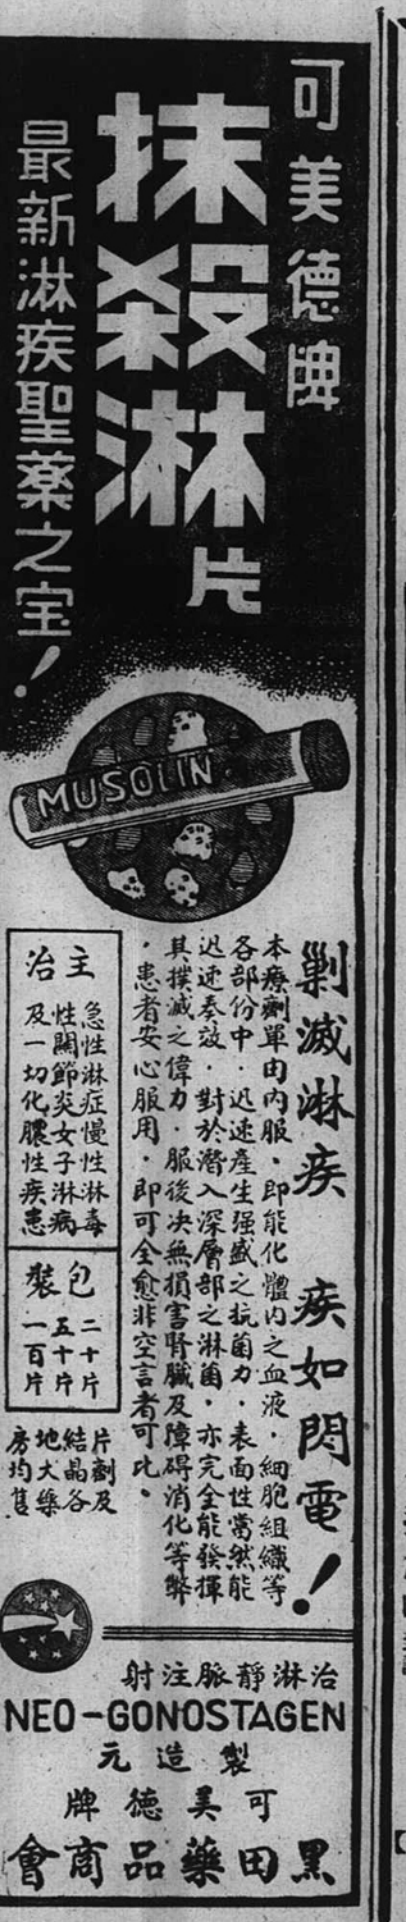 可美德牌
抹殺淋片
最新淋疾聖藥之宝！
MUSOLIN
剿滅淋疾　疾如閃電！
本療劑單由内服・即能化體内之血液・細胞組織等
各部份中・迅速產生强盛之抗菌力・表面性當然能
迅速奏效・對於潛入深層部之淋菌・亦完全能發揮
其撲滅之偉力・服後决無損害腎臟及障碍消化等弊
・患者安心服用・即可全愈非空言者可比・
主治
急性淋症慢性淋毒
性關節炎女子淋病
及一切化膿性疾患
包裝
二十片
五十片
一百片
片劑及
結晶各
地大藥
房均售
治淋靜脈注射
NEO-GONOSTAGEN
製造元
可美德牌
黑田藥品商會